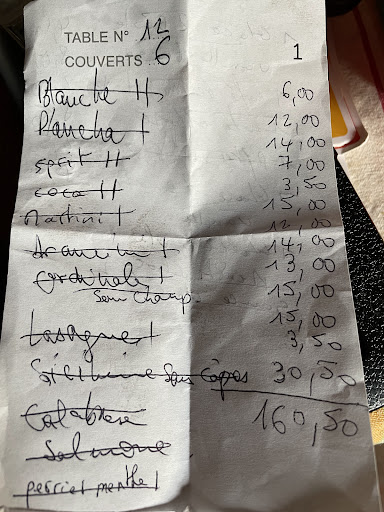 TABLE N° 12
COUVERTS 6
1
Blanche H 6,00
Plancha 1 12,00
14,00
sprit H 7,00
coca H 3,50
Martini 1 15,00
12,00
14,00
13,00
Cardinale 1
Sans Champ. 15,00
15,00
Lasagne 1 3,50
Sicilienne Sans Câpres 30,50
Calabrese 160,50
Salmone
perrier menthe 1